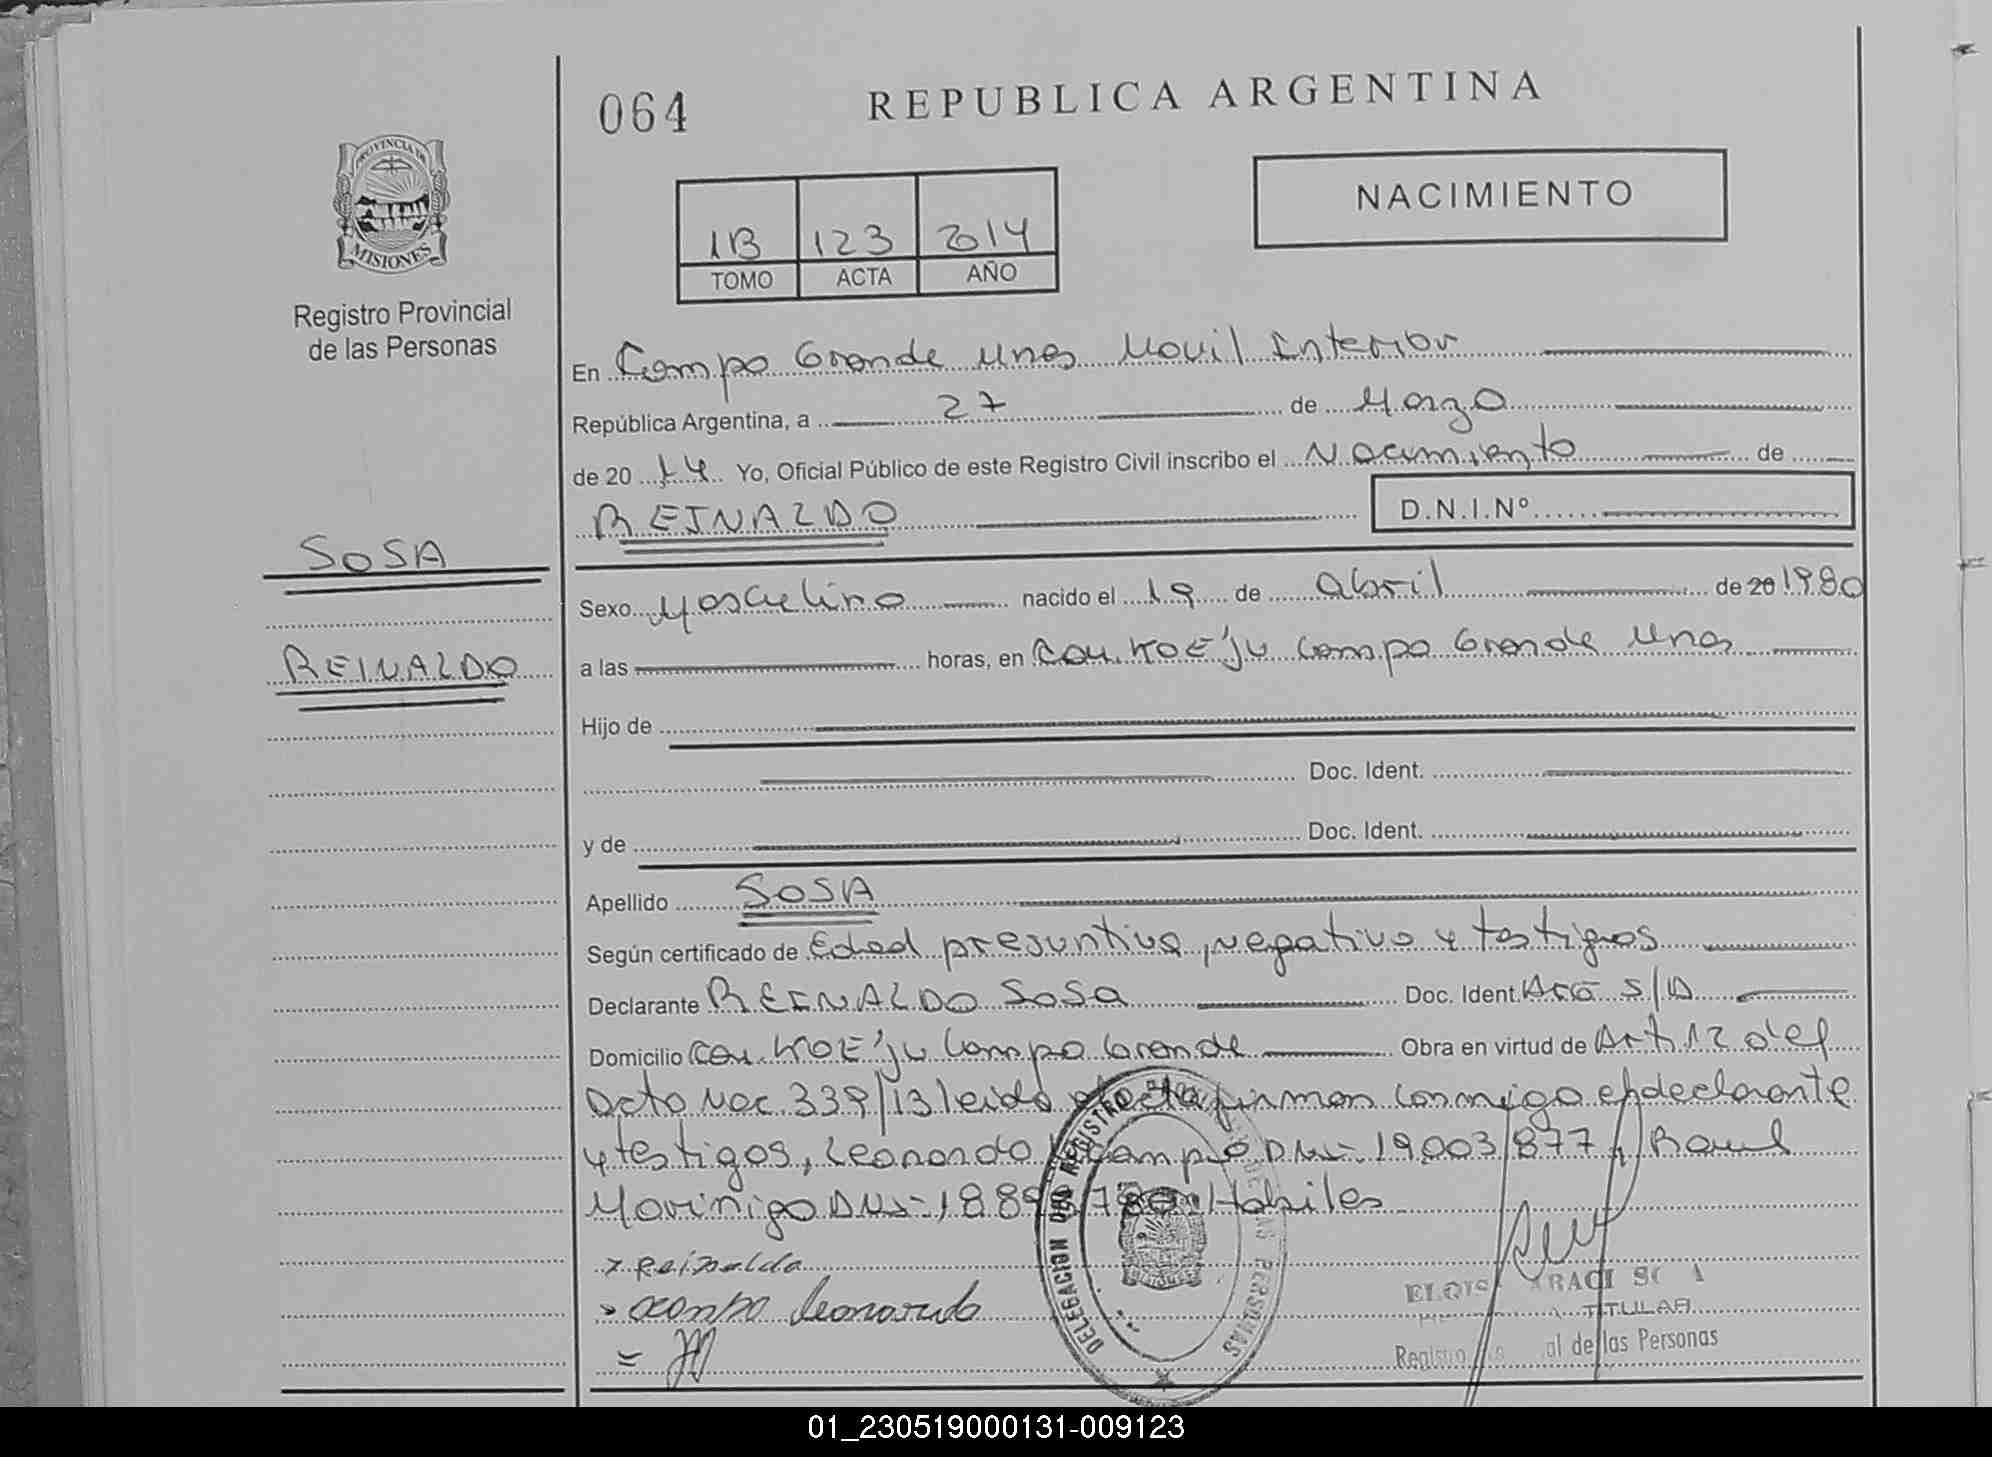 064
REPUBLICA ARGENTINA
PROVINCIA DE
MISIONES
Registro Provincial
de las Personas
NACIMIENTO
1B 123 2014
TOMO ACTA AÑO
En Campo Grande Mnes Movil Interior
República Argentina, a 27 de Marzo
de 2014 Yo, Oficial Público de este Registro Civil inscribo el Nacimiento de
REINALDO D.N.I.Nº
SOSA
REINALDO
Sexo Masculino nacido el 19 de Abril de 20 1980
a las horas, en Campo Grande Mnes
Hijo de
Doc. Ident.
y de Doc. Ident.
Apellido SOSA
Según certificado de Edad presuntiva, negativo y testigos
Declarante REINALDO SOSA Doc. Ident. S/D
Domicilio Campo Grande Obra en virtud de Art 12 del
Dcto Nac 339/13 leido el acta firman conmigo el declarante
y testigos, Leonardo DNI- 19.003.877, Raul
Moriñigo DNI- Habiles
x Reinaldo
Leonardo
DELEGACION DEL REGISTRO DE LAS PERSONAS
TITULAR
de las Personas
01_230519000131-009123